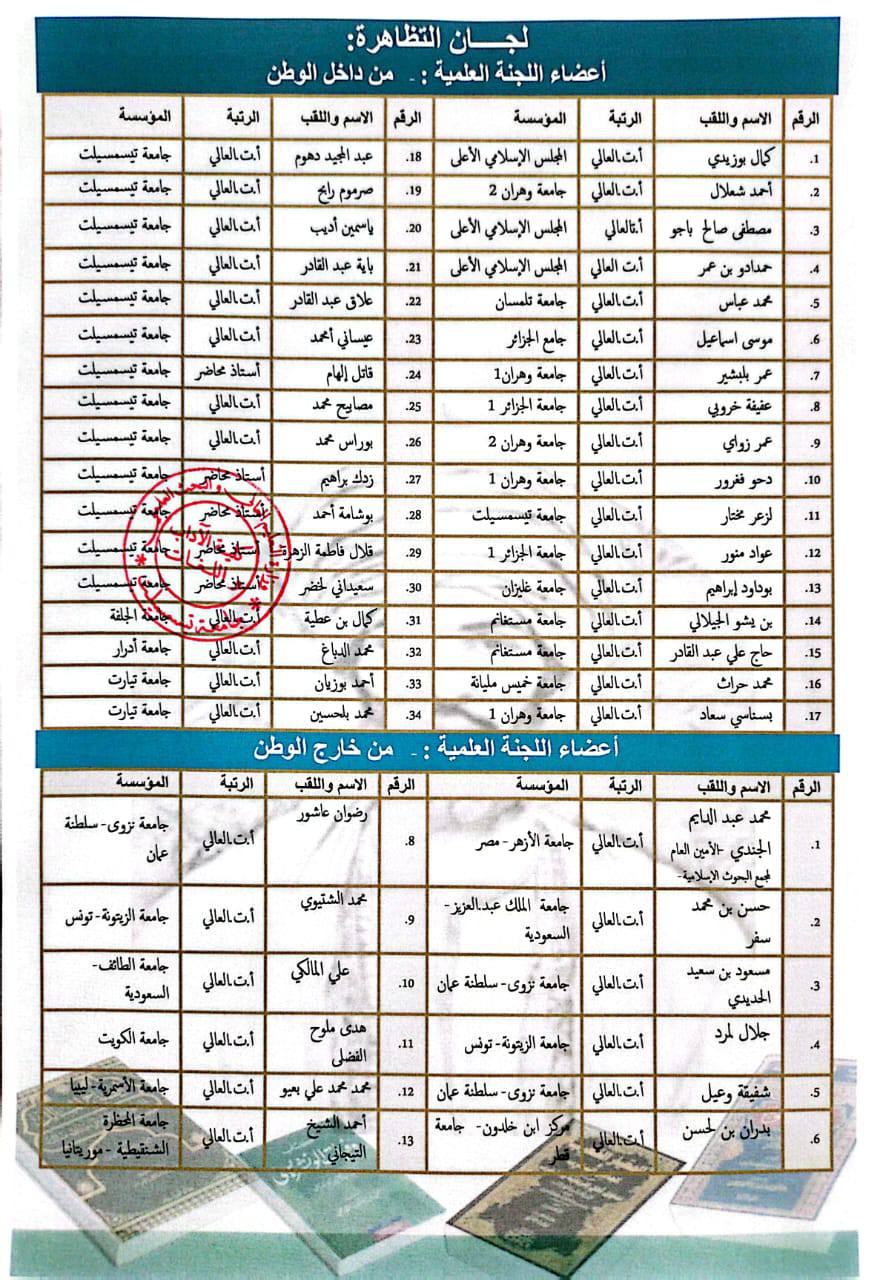 لجـــان التظاهرة:
أعضاء اللجنة العلمية : - من داخل الوطن
الرقم الاسم واللقب الرتبة المؤسسة الرقم الاسم واللقب الرتبة المؤسسة
1. كمال بوزيدي أ.ت.العالي المجلس الإسلامي الأعلى 18. عبد المجيد دهوم أ.ت.العالي جامعة تيسمسيلت
2. أحمد شعلال أ.ت.العالي جامعة وهران 2 19. صرموم رابح أ.ت.العالي جامعة تيسمسيلت
3. مصطفى صالح باجو أ.تالعالي المجلس الإسلامي الأعلى 20. ياسمين أديب أ.ت.العالي جامعة تيسمسيلت
4. حمدادو بن عمر أ.ت العالي المجلس الإسلامي الأعلى 21. باية عبد القادر أ.ت.العالي جامعة تيسمسيلت
5. محمد عباس أ.ت.العالي جامعة تلمسان 22. علاق عبد القادر أ.ت.العالي جامعة تيسمسيلت
6. موسى اسماعيل أ.ت.العالي جامع الجزائر 23. عيساني أمحمد أ.ت.العالي جامعة تيسمسيلت
7. عمر بلبشير أ.ت.العالي جامعة وهران1 24. قاتل إلهام أستاذ محاضر جامعة تيسمسيلت
8. عفيفة خروبي أ.ت.العالي جامعة الجزائر 1 25. مصابيح محمد أ.ت.العالي جامعة تيسمسيلت
9. عمر زواي أ.ت.العالي جامعة وهران 2 26. بوراس محمد أ.ت.العالي جامعة تيسمسيلت
10. دحو فغرور أ.ت.العالي جامعة وهران 1 27. زدك براهيم أستاذ محاضر جامعة تيسمسيلت
11. لزعر مختار أ.ت.العالي جامعة تيسمسيلت 28. بوشامة أحمد أستاذ محاضر جامعة تيسمسيلت
12. عواد منور أ.ت.العالي جامعة الجزائر 1 29. قلال فاطمة الزهرة أستاذ محاضر جامعة تيسمسيلت
13. بوداود إبراهيم أ.ت.العالي جامعة غليزان 30. سعيداني لخضر أستاذ محاضر جامعة تيسمسيلت
14. بن يشو الجيلالي أ.ت.العالي جامعة مستغانم 31. كمال بن عطية أ.ت.العالي جامعة الجلفة
15. حاج علي عبد القادر أ.ت.العالي جامعة مستغانم 32. محمد الدباغ أ.ت.العالي جامعة أدرار
16. محمد حراث أ.ت.العالي جامعة خميس مليانة 33. أحمد بوزيان أ.ت.العالي جامعة تيارت
17. بسناسي سعاد أ.ت.العالي جامعة وهران 1 34. محمد بلحسين أ.ت.العالي جامعة تيارت
كلية الآداب
و اللغات
جامعة تيسمسيلت
أعضاء اللجنة العلمية : - من خارج الوطن
الرقم الاسم واللقب الرتبة المؤسسة الرقم الاسم واللقب الرتبة المؤسسة
1. محمد عبد الدايم
الجندي -الأمين العام
لمجمع البحوث الإسلامية-
أ.ت.العالي جامعة الأزهر- مصر
8. رضوان عاشور أ.ت.العالي جامعة نزوى- سلطنة
عمان
2. حسن بن محمد
سفر
أ.ت.العالي جامعة الملك عبد العزيز-
السعودية
9. محمد الشتيوي أ.ت.العالي جامعة الزيتونة- تونس
3. مسعود بن سعيد
الحديدي
أ.ت.العالي جامعة نزوى- سلطنة عمان
10. علي المالكي أ.ت.العالي جامعة الطائف-
السعودية
4. جلال لمرد أ.ت.العالي جامعة الزيتونة- تونس
11. هدى ملوح
الفضلي
أ.ت.العالي جامعة الكويت
5. شفيقة وعيل أ.ت.العالي جامعة نزوى- سلطنة عمان 12. محمد محمد علي بعيو أ.ت.العالي جامعة الأسمرية- ليبيا
6. بدران بن لحسن أ.ت.العالي مركز ابن خلدون- جامعة
قطر
13. أحمد الشيخ
التيجاني
أ.ت.العالي جامعة المحظرة
الشنقيطية - موريتانيا